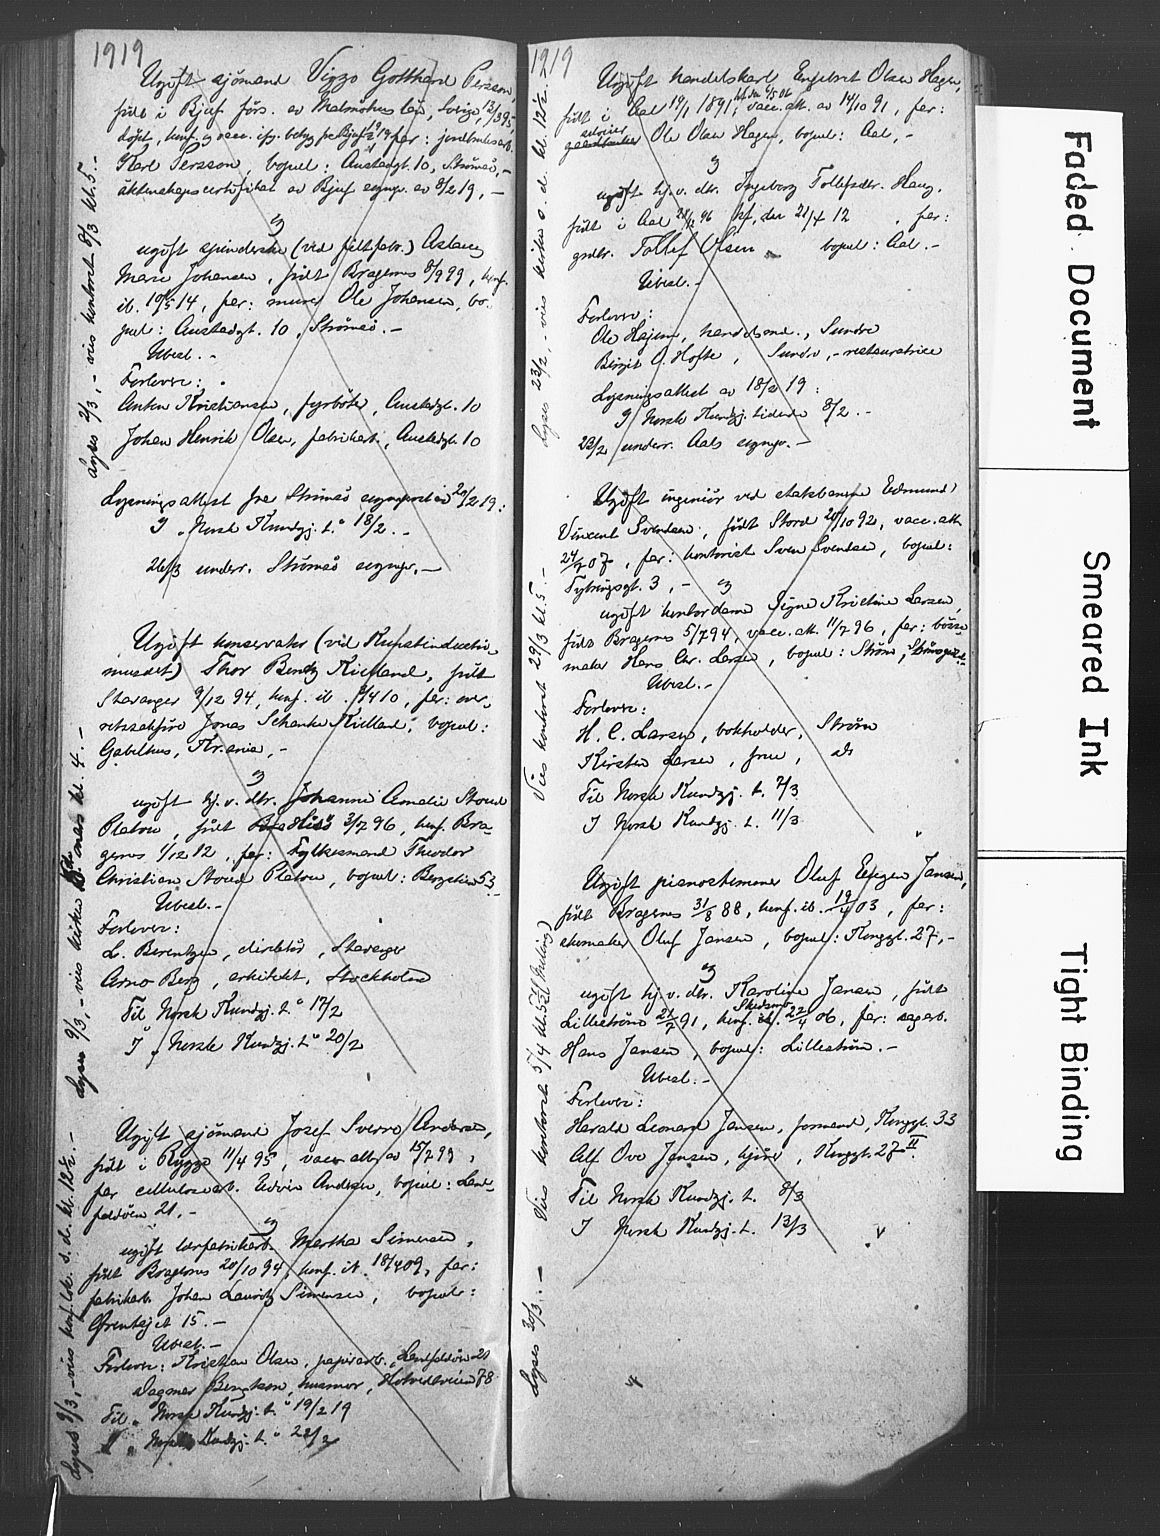 1919
Ugift sjömand Viggo Gotthard Persson,
född i Bjuf förs. av Malmöhus län, Sverige,
Karl Persson, bopæl: Austadgt. 10, Strømsø,-
av Bjuf av 8/2 19, -
og
ugift spinderske (ved filtfabr.) Aslaug
Marie Johansen, født Bragernes 8/9 99, konf.
ib. 10/5 14, far: murer Ole Johansen, bo-
pæl: Austadgt. 10, Strømsø.-
Ubesl. -
Forlovere:
Anton Kristiansen, fyrbøter, Austadgt. 10
Johan Henrik Olsen, fabrikarb., Austadgt. 10
Lysningsattest fra Strømsø 20/2 19:
I "Norsk Kundgj. t." 18/2. -
26/3 underr. Strømsø sognepr. -
Lyses 2/3, - vies kontoret 8/3 kl. 5. -
Ugift konservator (ved Kunstindustri-
museet) Thor Bendz Kielland, født
Stavanger 9/12 94, konf. ib. 10, far: over-
retssakfører Jonas Schanke Kielland, bopæl:
Gabelhus, Kr.ania, -
og
ugift hj.v. dtr. Johanne Amelie Stoud
Platou, født Hisø 3/7 96, konf. Bra-
gernes 1/12 12, far: Fylkesmand Theodor
Christian Stoud Platou, bopæl: Bergstien 53.
Ubesl. -
Forlovere:
L. Berentzen, direktør, Stavanger
Arno Berg, arkitekt, Stockholm
Til Norsk Kundgj. t." 17/2
I "Norsk Kundgj. t." 20/2
Lyses 9/3, - vies kirken kl. 4. -
Ugift sjømand Josef Sverre Andersen,
født i Rygge 11/4 95, vacc. att. av 15/7 99,
far cellulosearb. Edvin Andersen, bopæl: Land-
faldøen 21. -
og
ugift tørfabrikarb. Martha Simensen,
født Bragernes 20/10 94, konf. ib. 18/4 09, far:
fabrikarb. Johan Lauritz Simensen, bopæl:
15. -
Ubesl. -
Forlovere: Kristian Olsen, papirarb., Landfaldøen 21
Dagmar Bengtson, husmor, Hotvedtveien 78
Til "Norsk Kundgj. t." 19/2 19
I "Norsk Kundgj. t." 22/2
Lyses 9/3, - vies konf.lok. s. d. kl. 12½. -
1919
Ugift handelskarl Engebret Olsen Hagen,
født i Aal 19/1 1891, vacc. att. av 14/10 91, far:
Ole Olsen Hagen, bopæl: Aal, -
og
ugift hj.v. dtr. Ingeborg Tollefsdtr. Haug,
født i Aal 96 kf. der 21/4 12, far:
gmbr. Tollef Olsen bopæl: Aal. -
Ubesl. -
Forlovere:
Ole Hagen, handelsmd., Sundre
Birgit O. Hofte, Sundre, - restauratrice
Lysningsattest av 18/2 19:
I Norsk Kundgj. tidende 8/2. -
22/2 underr. Aals sognepr. -
Lyses 23/2, - vies kirken s. d. kl. 12½. -
Ugift ingeniør ved statsbanene Edmund
Vincent Svendsen, født Stord 20/10 92, vacc. att.
07, far: kontorist Sven Svendsen, bopæl:
3, - og
ugift kontordame Signe Kristine Larsen,
født Bragernes 5/7 94, vacc. att. 11/7 96, far: bøsse-
maker Hans Chr. Larsen, bopæl: Strøm,
Ubesl. -
Forlovere:
H. C. Larsen, bokholder, Strøm
Kirsten Larsen, frue, do
Til Norsk Kundgj. t. 7/3
I Norsk Kundgj. t. 11/3
Vies kontoret 29/3 kl. 5. -
Ugift pianostemmer Oluf Eugen Jansen,
født Bragernes 31/8 88, konf. ib. 19/4 03, far:
Oluf Jansen, bopæl: Konggt. 27, -
og
ugift hj.v. dtr. Karoline Jansen, født
Lillestrøm 91, konf. Skedsmo 22/4 06, far: sagarb.
Hans Jansen, bopæl: Lillestrøm. -
Ubesl. -
Forlovere:
Harald Leonard Jansen, formand, Konggt. 33
Alf Ove Jansen, Konggt. 27 II
Til Norsk Kundgj. t. 8/3
I Norsk Kundgj. t. 13/3
Lyses 30/3, - Vies kontoret 5/4
Faded Document
Smeared Ink
Tight Binding